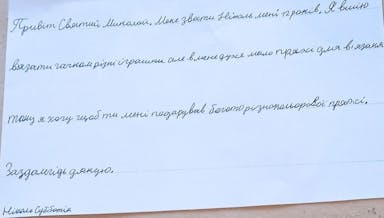 Привіт Святий Миколай. Мене звати Ніколь мені років. Я вмію
вязати гачком різні іграшки але в мене дуже мало пряжі для в'язання
тому я хочу щоб ти мені подарував богото різнопольорової пряжі.
Заздалегідь дякую.
Ніколь Субботін